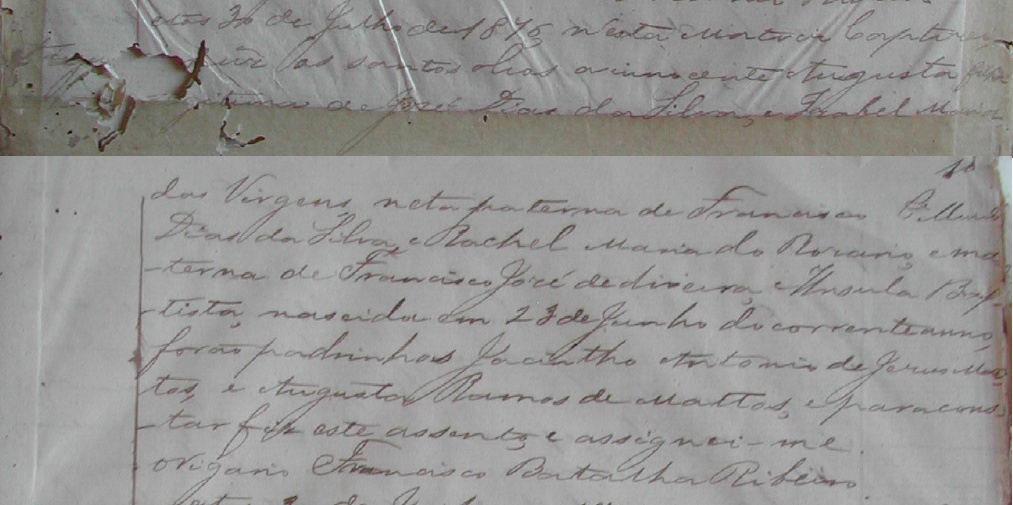 aos 30 de Julho de 1876 n'esta Matriz baptizei
os santos oleos a innocente Augusta filha
legitima de José Dias da Silva, e Isabel Maria
10
das Virgens, neta paterna de Francisco
Dias da Silva, e Rachel Maria do Rosario, e ma-
terna de Francisco José de Oliveira, e Ursula Bap-
tista, nascida em 23 de Junho do corrente anno,
forão padrinhos Jacintho Antonio de Jesus Mat-
tos, e Augusta Ramos de Mattos, e para cons-
tar fiz este assento, e assignei-me
O vigario Francisco Batalha Ribeiro